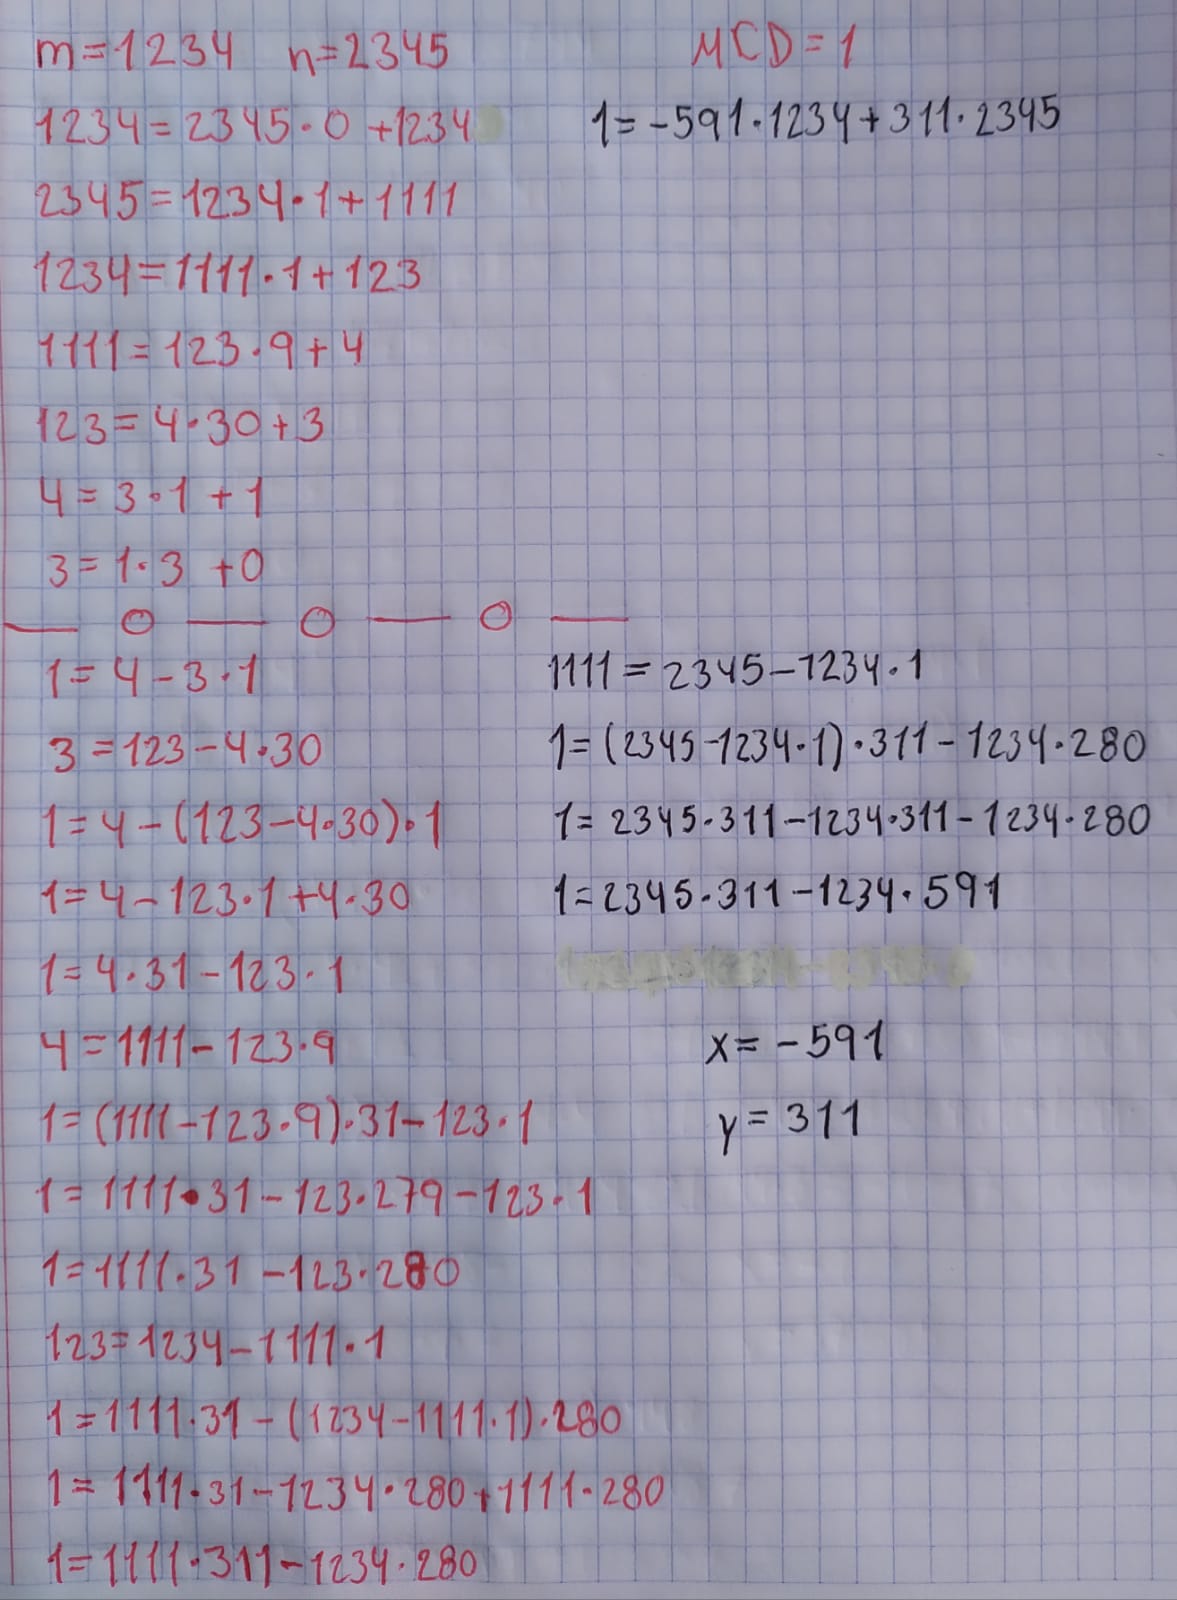 m=1234 n=2345 MCD=1
1234=2345·0+1234 1=-591·1234+311·2345
2345=1234·1+1111
1234=1111·1+123
1111=123·9+4
123=4·30+3
4=3·1+1
3=1·3+0
1=4-3·1
3=123-4·30
1=4-(123-4·30)·1
1=4-123·1+4·30
1=4·31-123·1
4=1111-123·9
1=(1111-123·9)·31-123·1
1=1111·31-123·279-123·1
1=1111·31-123·280
123=1234-1111·1
1=1111·31-(1234-1111·1)·280
1=1111·31-1234·280+1111·280
1=1111·311-1234·280
1111=2345-1234·1
1=(2345-1234·1)·311-1234·280
1=2345·311-1234·311-1234·280
1=2345·311-1234·591
x=-591
y=311